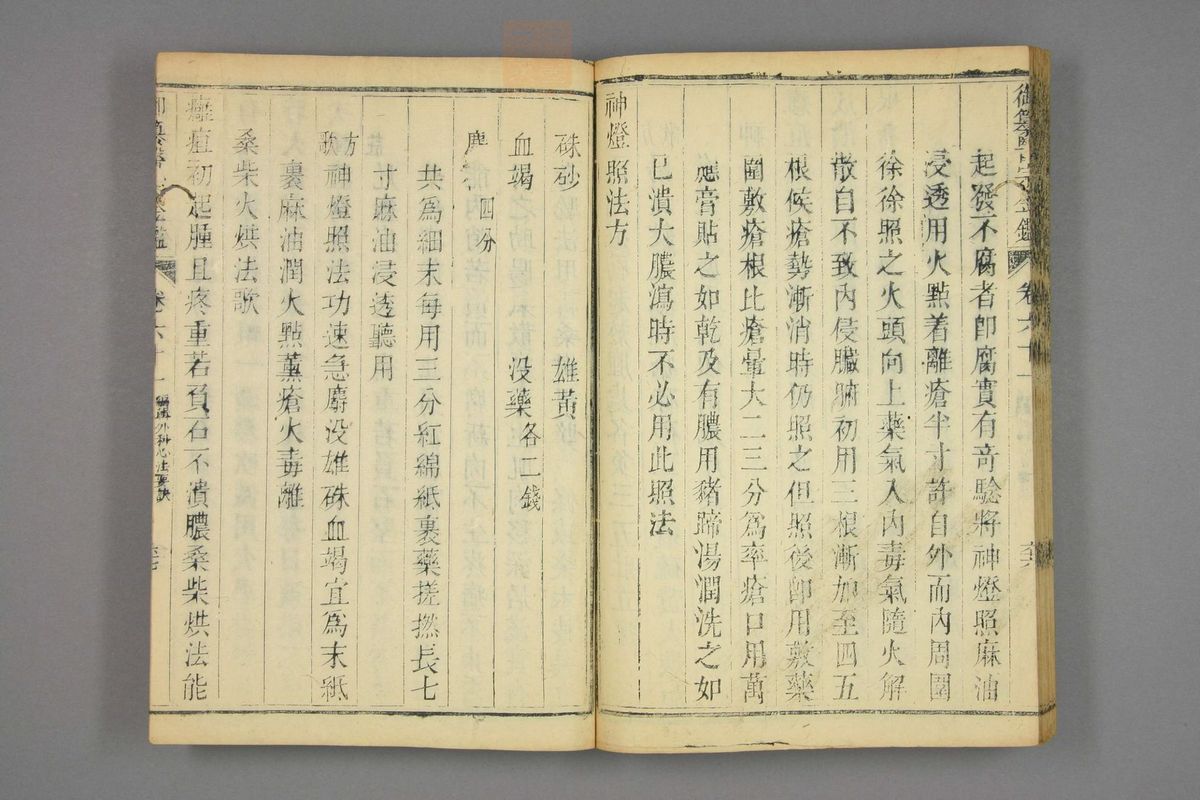 御纂醫宗金鑑 卷六十一
起發不腐者卽腐實有竒驗將神燈照麻油
浸透用火點着離瘡半寸許自外而內周圍
徐徐照之火頭向上藥氣入內毒氣隨火解
散自不致內侵臟腑初用三根漸加至四五
根候瘡勢漸消時仍照之但照後卽用敷藥
圍敷瘡根比瘡暈大二三分爲率瘡口用萬
應膏貼之如乾及有膿用豬蹄湯潤洗之如
已潰大膿瀉時不必用此照法
神燈照法方
硃砂 雄黃
血竭 没藥各二錢
麝 四分
共爲細末每用三分紅綿紙裹藥搓撚長七
寸麻油浸透聽用
方歌 神燈照法功速急麝没雄硃血竭宜爲末紙
裹麻油潤火點薰瘡火毒離
桑柴火烘法歌
癰疽初起腫且疼重若負石不潰膿桑柴烘法能
卷六十一 編輯外科心法要訣